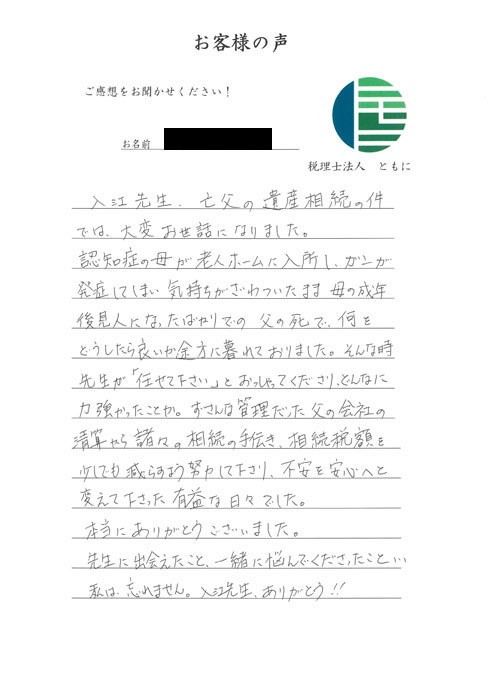 お客様の声
ご感想をお聞かせください！
お名前
税理士法人 ともに
入江先生、亡父の遺産相続の件
では、大変お世話になりました。
認知症の母が老人ホームに入所し、ガンが
発症してしまい気持ちがざわついたまま母の成年
後見人になったばかりでの父の死で、何を
どうしたら良いか途方に暮れておりました。そんな時
先生が「任せて下さい」とおっしゃてくださり、どんなに
力強かったことか。ずさんな管理だった父の会社の
清算から諸々の相続の手伝き、相続税額を
少しでも減らすよう努力して下さり、不安を安心へと
変えて下さった有益な日々でした。
本当にありがとうございました。
先生に出会えたこと、一緒に悩んでくださったこと…
私は忘れません。入江先生、ありがとう!!